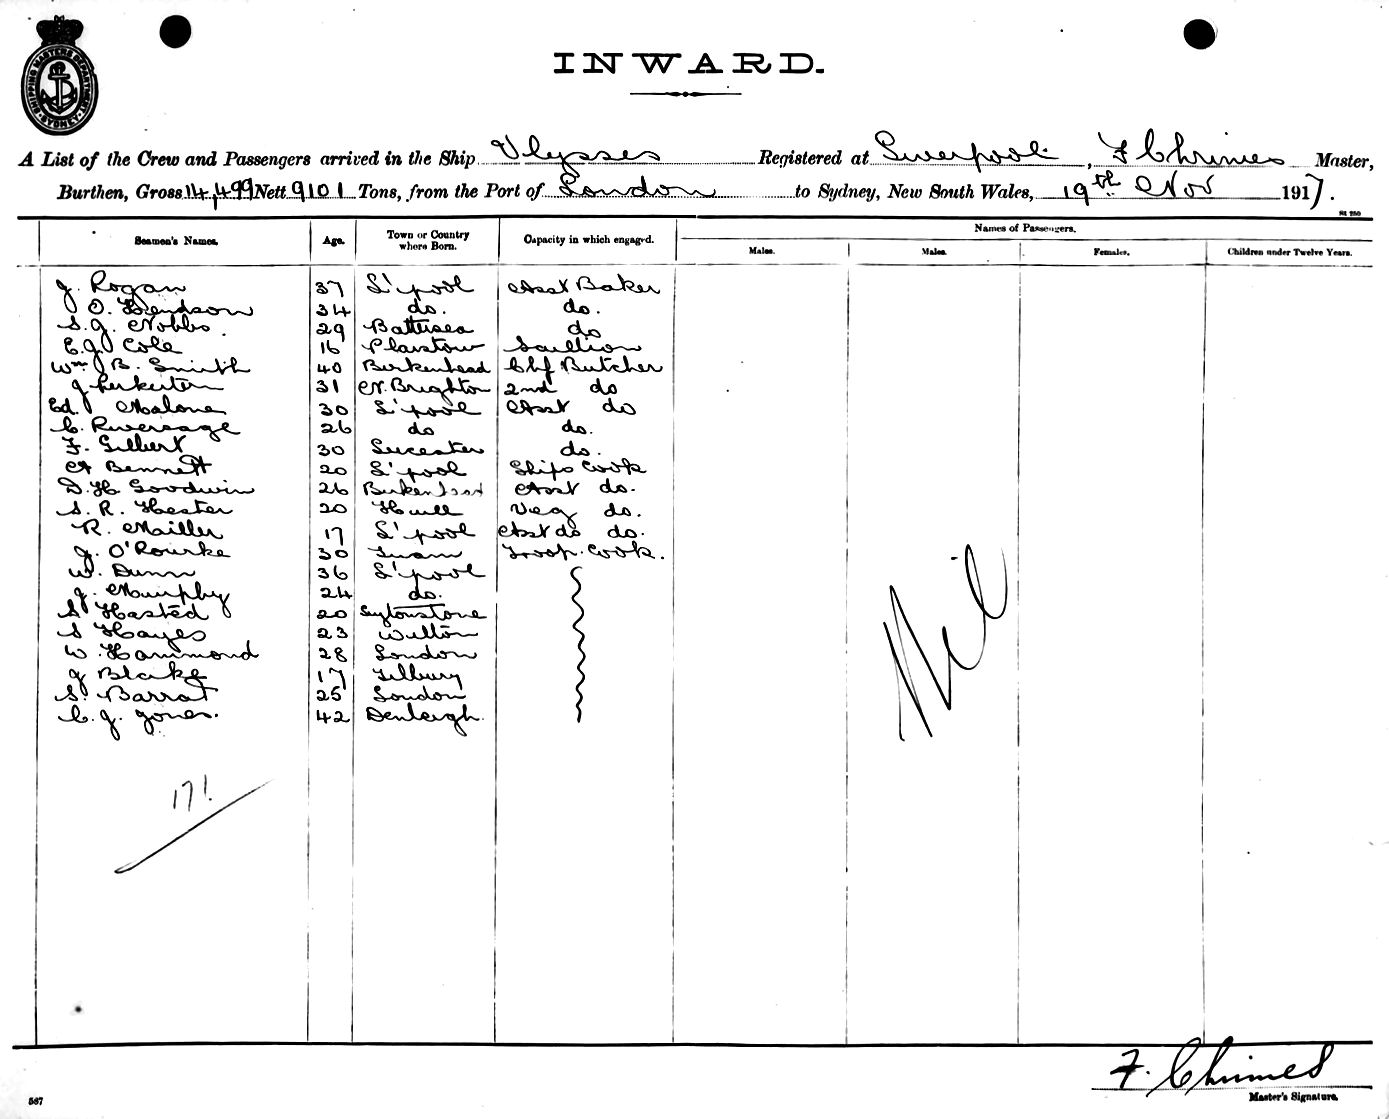 SHIPPING MASTERS DEPARTMENT SYDNEY
INWARD.
A List of the Crew and Passengers arrived in the Ship Ulysses Registered at Liverpool, F Chrimes Master,
Burthen, Gross 14,499 Nett 9101 Tons, from the Port of London to Sydney, New South Wales, 19th Nov 1917.
Seamen's Names. Age. Town or Country where Born. Capacity in which engaged. Names of Passengers.
Males. Males. Females. Children under Twelve Years.
J. Rogan 37 L'pool Asst Baker
O. 34 do. do.
S. J. Nobbs. 29 Battersea do
E. J. Cole 16 Plaistow Scullion
Wm B. Smith 40 Birkenhead Chf Butcher
J 31 N. Brighton 2nd do
Ed. Malone 30 L'pool Asst do
C. Riversage 26 do do.
F. Gilbert 30 Leicester do.
A Bennett 20 L'pool Ships Cook
D. H. Goodwin 26 Birkenhead Asst do.
S. R. Hester 20 Hull Veg do.
R. Mailler 17 L'pool Asst do do.
J. O'Rourke 30 Tuam Troop. Cook.
W. Dunn 36 L'pool
J. Murphy 24 do.
S Hasted 20 Leytonstone
S Hayes 23 Wilton
W. Hammond 28 London
J Blake 17 Tilbury
S. Barrat 25 London
C. J. Jones. 42 Denbigh.
Nil
171
F. Chrimes
Master's Signature.
567